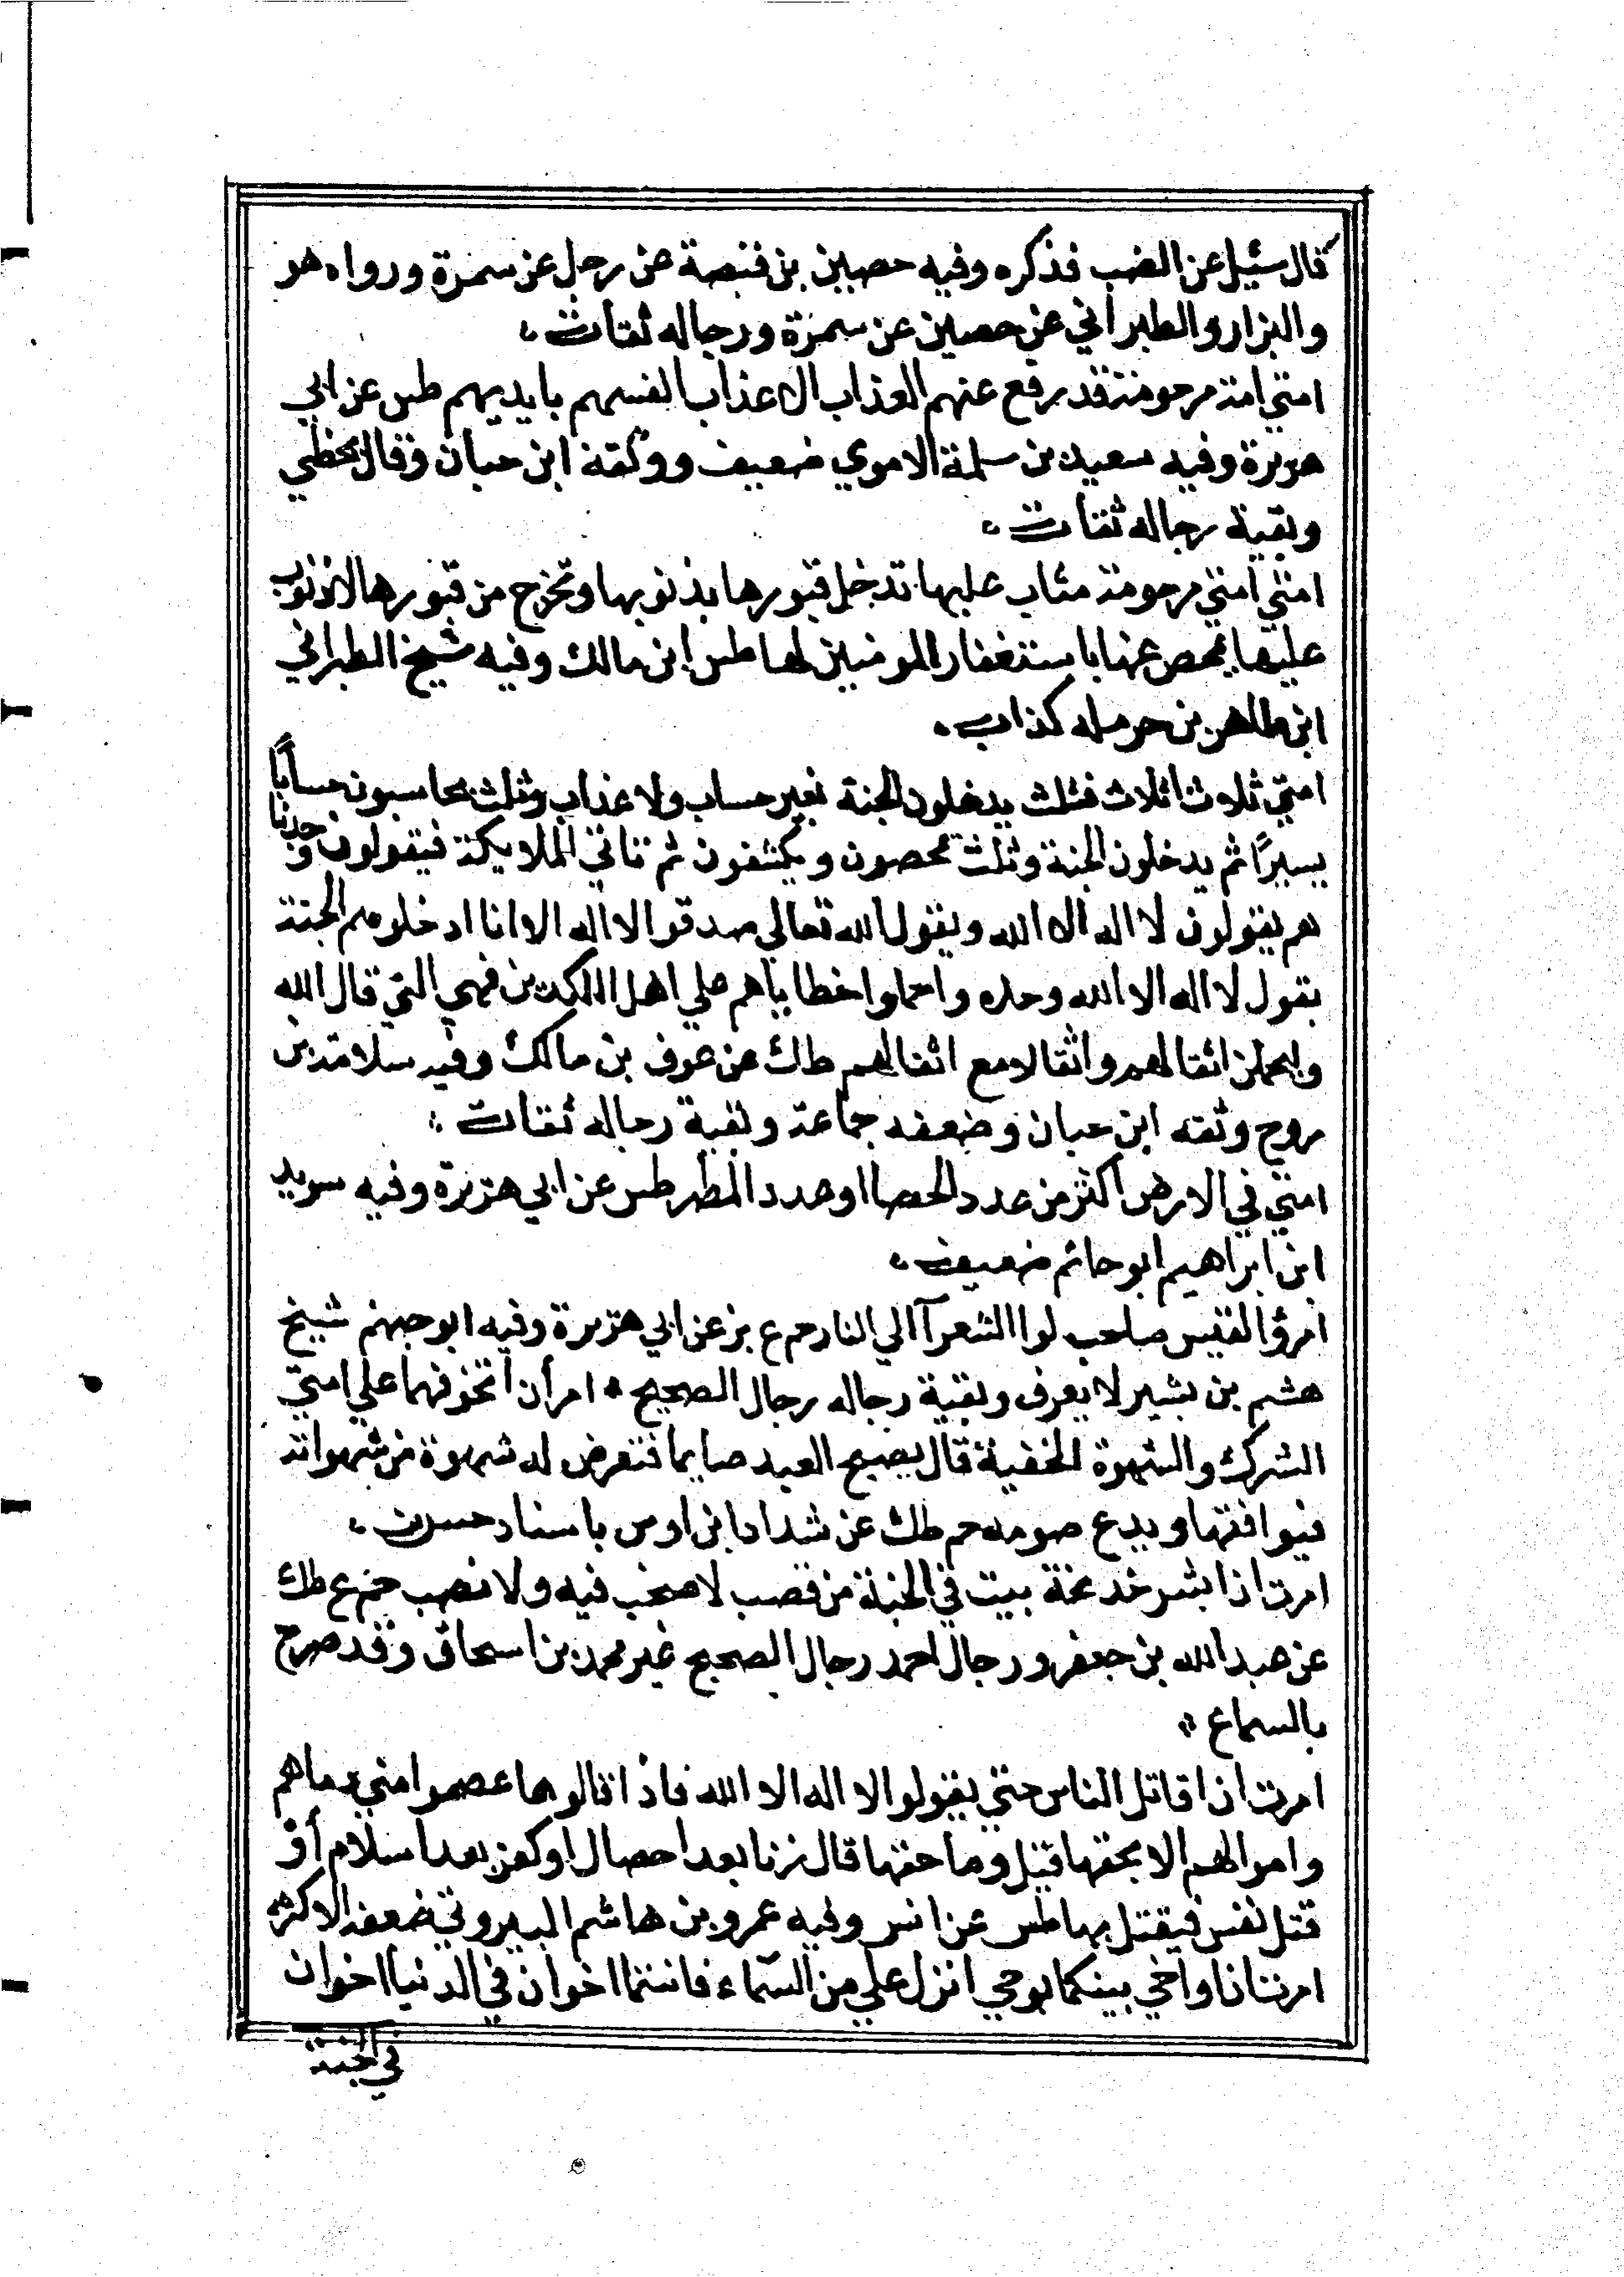 قال سئيل عن الضب فذكره وفيه حصين بن قبصة عن رجل عن سمرة ورواه هو
والبزار والطبراني عن حصين عن سمرة ورجاله ثقات
امتي امة مرحومة قد رفع عنهم العذاب الا عذاب انفسهم بايديهم طس عن ابي
هريرة وفيه سعيد بن سلمة الاموي ضعيف ووثقه ابن حبان وقال يخطي
وبقية رجاله ثقات
امتي امتي مرحومة متاب عليها تدخل قبورها بذنوبها وتخرج من قبورها لاذنوب
عليها يمحص عنها باستغفار المومنين لها طس ابن مالك وفيه شيخ الطبراني
ابن طاهر بن حرمله كذاب
امتي ثلاث اثلاث فثلث يدخلون الجنة بغير حساب ولا عذاب وثلث يحاسبون حسابا
يسيرا ثم يدخلون الجنة وثلث يمحصون ويكشفون ثم تاتي الملايكة فيقولون وجدنا
هم يقولون لا اله الا الله ويقول الله تعالي صدقوا لا اله الا انا ادخلوهم الجنة
بقول لا اله الا الله وحده واحملوا خطاياهم علي اهل التي قال الله
وليحملن اثقالهم واثقالا مع اثقالهم طك عن عوف بن مالك وفيه سلامة بن
روح وثقه ابن حبان وضعفه جماعة وبقية رجاله ثقات
امتي في الارض اكثر من عدد الحصا او عدد المطر طس عن ابي هريرة وفيه سويد
ابن ابراهيم ابو حاتم ضعيف
امرؤ القيس صاحب لوا الشعرآ الي النار حم ع بز عن ابي هريرة وفيه ابو جهم شيخ
هشم بن بشير لا يعرف وبقية رجاله رجال الصحيح * امران اتخوفهما علي امتي
الشرك والشهوة الخفية قال يصبح العبد صايما فتعرض له شهوة من شهواته
فيوافقها ويدع صومه حم طك عن شداد ابن اوس باسناد حسن
امرت اذا بشر خديجة بيت في الجنة من قصب لا صخب فيه ولا نصب حم ع طك
عن عبد الله بن جعفر ورجال احمد رجال الصحيح غير محمد بن اسحاق وقد صرح
بالسماع
امرت ان اقاتل الناس حتي يقولوا لا اله الا الله فاذا قالوها عصموا مني دماهم
واموالهم الا بحقها قيل وما حقها قال زنا بعد احصال او كفر بعد اسلام أو
قتل نفس فيقتل بها طس عن انس وفيه عمرو بن هاشم البيروتي ضعفه الاكثر
امرت ان اواخي بينكما بوحي انزل علي من السماء فانتما اخوان في الدنيا اخوان
في الجنة